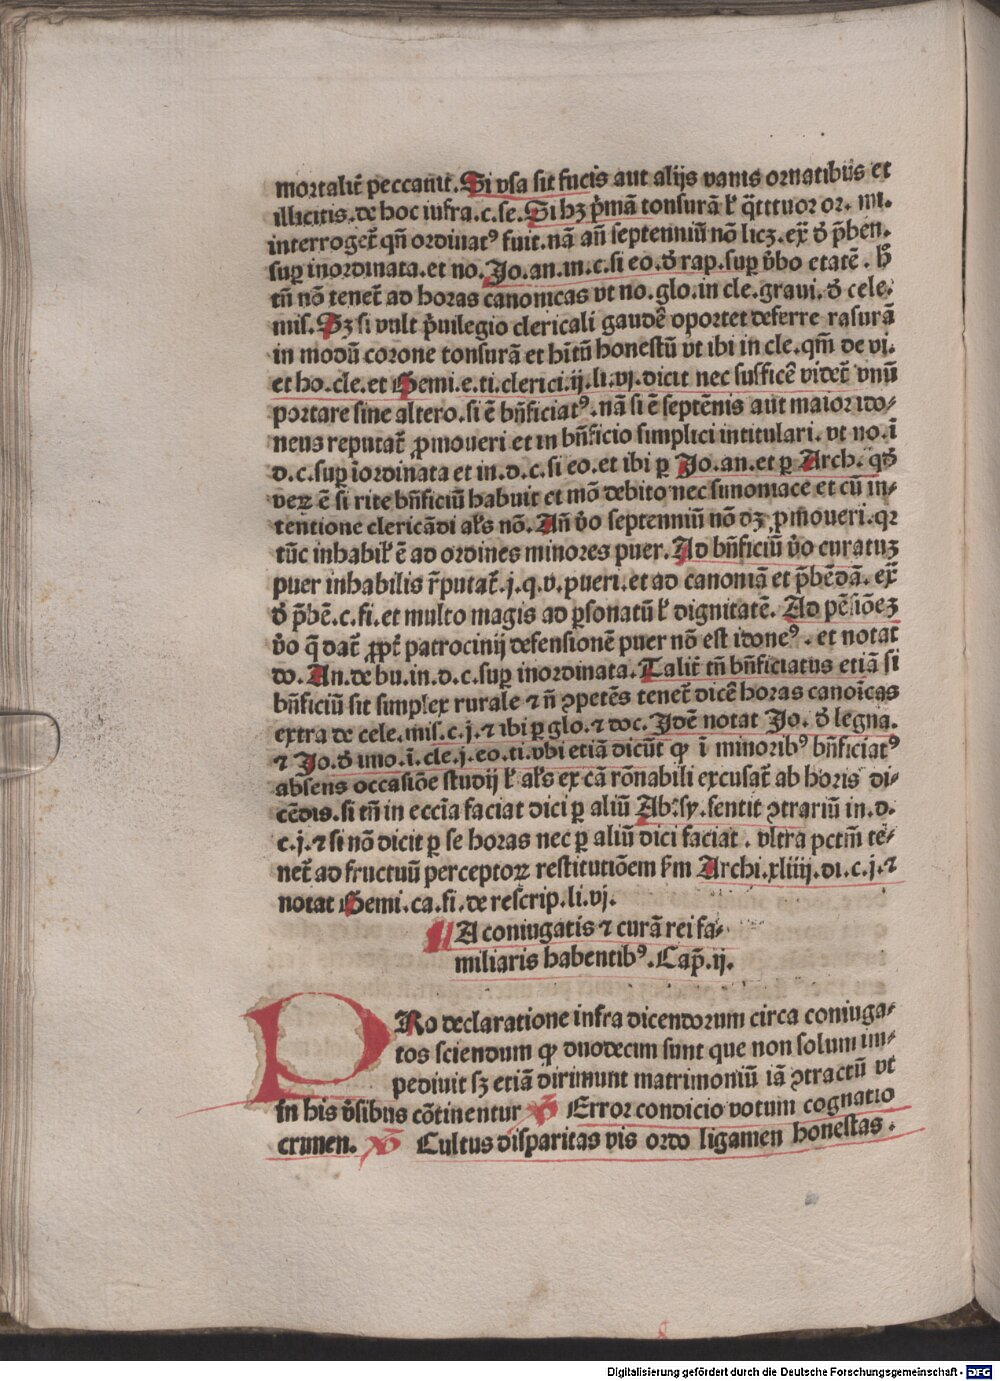 mortalit̃ peccauit. Si vsa sit fucis aut alijs vanis ornatibus et
illicitis. de hoc infra. c. se. Si hʒ p̄mā tonsurā ł q̄ttuor or. mi.
interroget̃ qñ ordinatꝰ fuit. nā añ septenniū nō licʒ. ex̄ ð p̄ben.
suꝑ inordinata. et no. Jo. an. in. c. si eo. ð rap. suꝑ v̄bo etatē. h̄
tñ nō tenet̃ ad horas canonicas vt no. glo. in cle. graui. ð cele.
mis. Sʒ si vult p̄uilegio clericali gaudē oportet deferre rasurā
in modū corone tonsurā et hītū honestū vt ibi in cle. qm̄ de vi.
et ho. cle. et Gemi. e. ti. clerici. ij. li. vj. dicit nec sufficē videt̃ vnū
portare sine altero. si ē bñficiatꝰ. nā si ē septēnis aut maior ido-
neus reputat̃ ꝓmoueri et in bñficio simplici intitulari. vt no. ī
d. c. suꝑ īordinata et in. d. c. si eo. et ibi ꝑ Jo. an. et ꝑ Arch. qð
veꝝ ē si rite bñficiū habuit et mō debito nec simoniace et cū in-
tentione clericādi als nō. Añ v̄o septenniū nō dʒ ꝓmoueri. qꝛ
tūc inhabił ē ad ordines minores puer. Ad bñficiū v̄o curatuʒ
puer inhabilis r̄putat̃. j. q. v. pueri. et ad canoniā et p̄bēdā. ex̄
ð p̄bē. c. fi. et multo magis ad ꝑsonatū ł dignitatē. Ad pēsiōeʒ
v̄o q̄ dat̃ ꝓpt̃ patrocinij defensionē puer nō est idoneꝰ. et notat
do. An. de bu. in. d. c. suꝑ inordinata. Talit̃ tñ bñficiatus etiā si
bñficiū sit simplex rurale ⁊ ñ ꝯpetēs tenet̃ dicē horas canoīcas
extra de cele. mis. c. j. ⁊ ibi ꝑ glo. ⁊ doc. Jdē notat Jo. ð legna.
⁊ Jo. ð imo. ī. cle. j. eo. ti. vbi etiā dicūt ꝙ ī minoribꝰ bñficiatꝰ
absens occasiōe studij ł als ex cā rōnabili excusat̃ ab horis di-
cēdis. si tñ in ecc̄ia faciat dici ꝑ aliū Ab. sy. sentit ꝯtrariū in. d.
c. j. ⁊ si nō dicit ꝑ se horas nec ꝑ aliū dici faciat. vltra pctm̄ te-
net̃ ad fructuū perceptoꝝ restitutiōem ẜm Archi. xliiij. di. c. j. ⁊
notat Gemi. ca. fi. de rescrip. li. vj.
¶ A coniugatis ⁊ curā rei fa-
miliaris habentibꝰ. Cap̄. ij.
PRo declaratione infra dicendorum circa coniuga-
tos sciendum ꝙ duodecim sunt que non solum im-
pediuit sʒ etiā dirimunt matrimoniū iā ꝯtractū vt
in his v̄sibus cōtinentur v̄ Error condicio votum cognatio
crimen. v̄ Cultus disparitas vis ordo ligamen honestas.
Digitalisierung gefördert durch die Deutsche Forschungsgemeinschaft - DFG